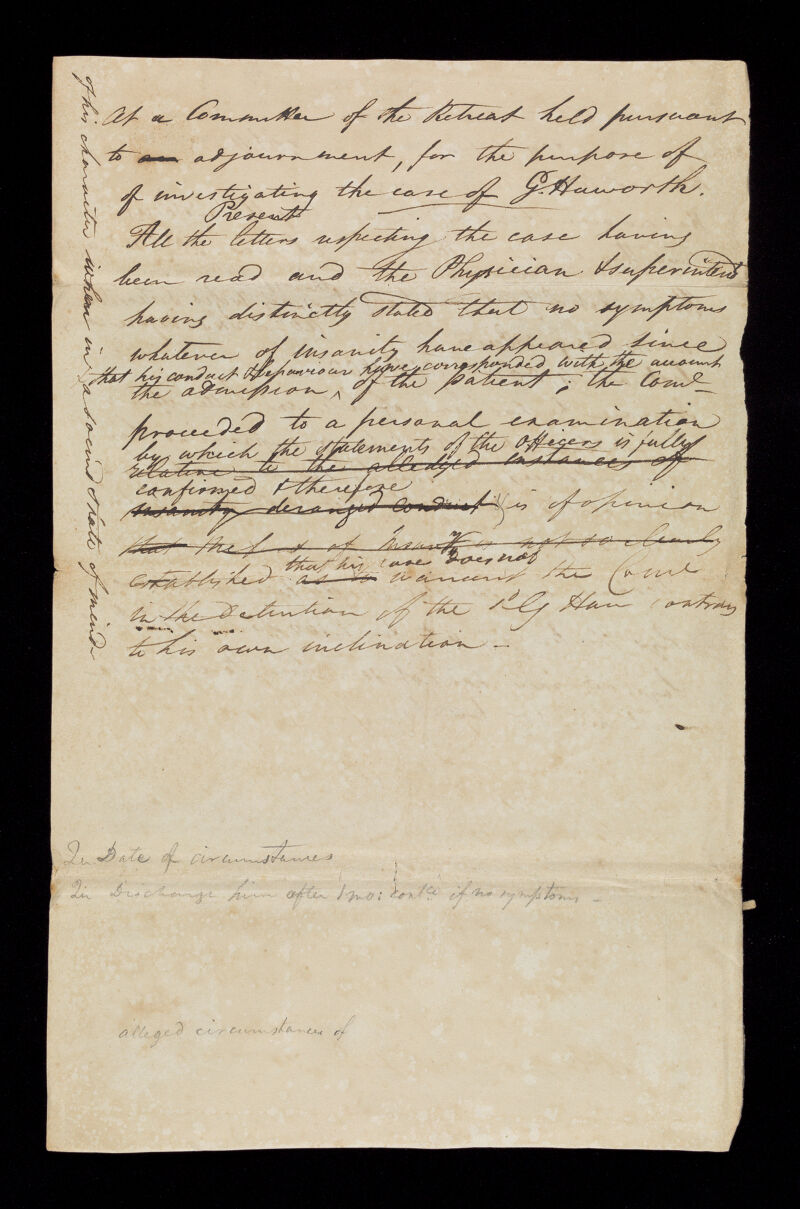 At a Committee of the Retreat held pursuant
to an adjournment, for the purpose of
of investigating the case of G. Haworth.
Present
All the letters respecting the case having
been read and the Physician & superintend
having distinctly stated that no symptoms
whatever of insanity have appeared since
that his conduct & behaviour have corresponded with the account
the admission, of the patient; the Come
proceeded to a personal examination
by which the statements of the officers is fully
relative to the alledged instances of
confirmed & therefore
insanity deranged conduct is of opinion
that the of insanity is not so clearly
that his case does not
established as to warrant the Come
in the Detention of the sd G Haw contrary
to his own inclination —
of his character when in a sound state of mind
Qu Date of circumstances
Qu Discharge him after 1 mo: contce if no symptoms —
alleged circumstances of